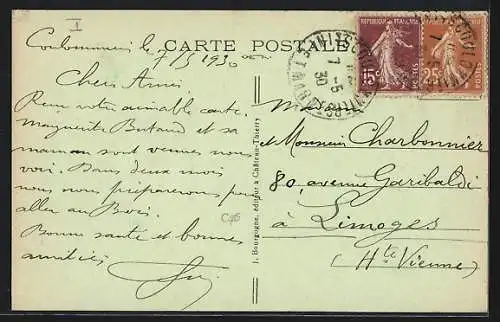 I
CARTE POSTALE
Coulommiers le 7/5 1930
Chers Amis,
Reçu votre aimable carte.
Marguerite Butaud et sa
maman sont venues nous
voir. Dans deux mois
nous nous préparerons pour
aller au Bois.
Bonne santé et bonnes
amitiés
J. Bourgogne, éditeur à Château-Thierry
REPUBLIQUE FRANÇAISE
15c
POSTES
REPUBLIQUE FRANÇAISE
25c
POSTES
7 -5
30
et Monsieur Charbonnier
80, avenue Garibaldi
à Limoges
(Hte Vienne)